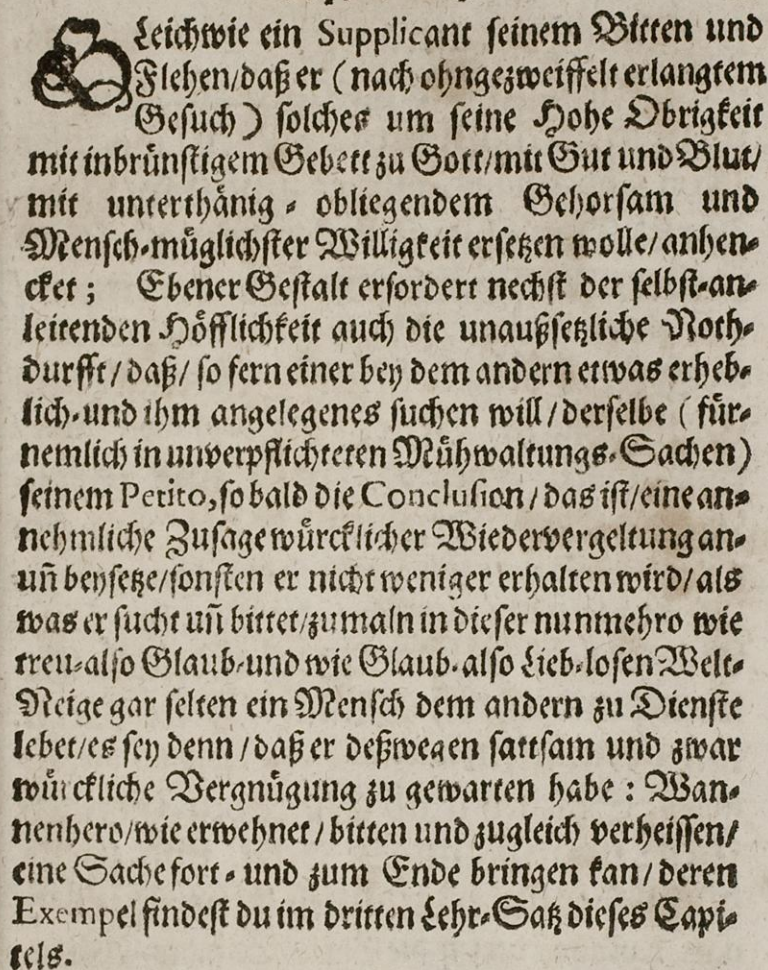 GLeichwie ein Supplicant seinem Bitten und
Flehen/daß er (nach ohngezweiffelt erlangtem
Gesuch) solches um seine Hohe Obrigkeit
mit inbrünstigem Gebett zu Gott/mit Gut und Blut/
mit unterthänig-obliegendem Gehorsam und
Mensch-müglichster Willigkeit ersetzen wolle/anhen-
cket; Ebener Gestalt erfordert nechst der selbst-an-
leitenden Höfflichkeit auch die unaußsetzliche Noth-
durfft/daß/so fern einer bey dem andern etwas erheb-
lich-und ihm angelegenes suchen will/derselbe (für-
nemlich in unverpflichteten Mühwaltungs-Sachen)
seinem Petito,so bald die Conclusion/das ist/eine an-
nehmliche Zusage würcklicher Wiedervergeltung an-
uñ beysetze/sonsten er nicht weniger erhalten wird/als
was er sucht uñ bittet/zumaln in dieser nunmehro wie
treu-also Glaub-und wie Glaub-also Lieb-losen Welt-
Neige gar selten ein Mensch dem andern zu Dienste
lebet/es sey denn/daß er deßwegen sattsam und zwar
würckliche Vergnügung zu gewarten habe: Wan-
nenhero/wie erwehnet/bitten und zugleich verheissen/
eine Sache fort-und zum Ende bringen kan/deren
Exempel findest du im dritten Lehr-Satz dieses Capi-
tels.